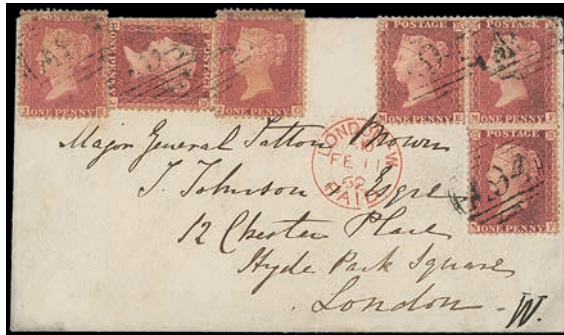 POSTAGE
ONE PENNY
POSTAGE
ONE PENNY
POSTAGE
ONE PENNY
POSTAGE
ONE PENNY
POSTAGE
ONE PENNY
POSTAGE
ONE PENNY
LONDON W
FE 11
62
PAID
Major General Tatton Brown
T. Johnson Esqre
12 Chester Place
Hyde Park Square
London - W.